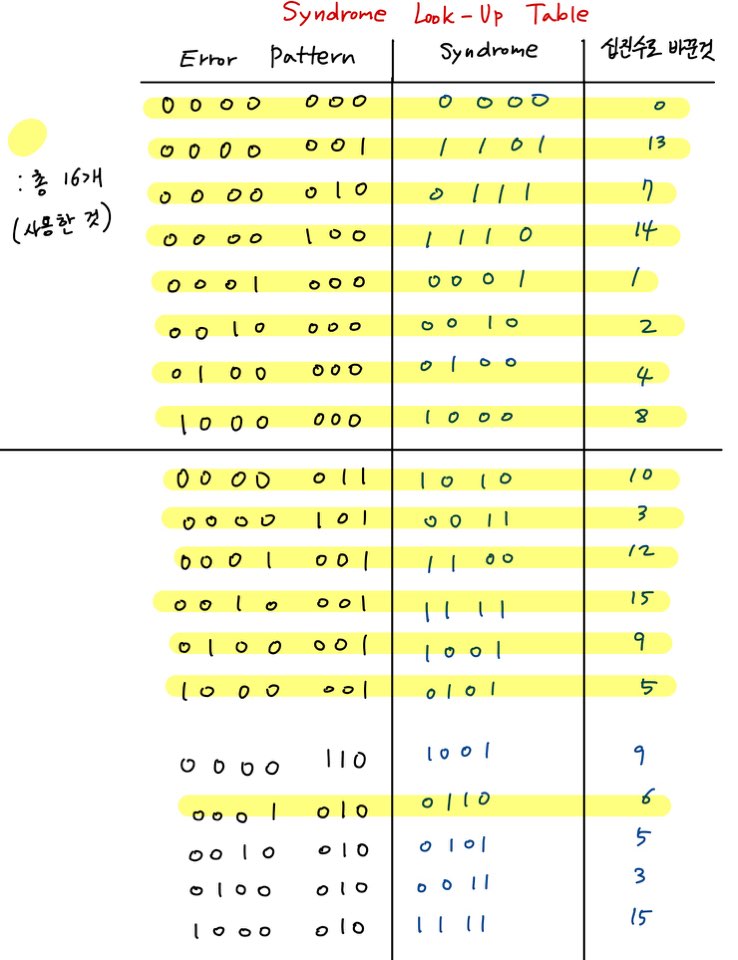 Syndrome Look-Up Table
Error Pattern Syndrome 십진수로 바꾼것
0 0 0 0 0 0 0 0 0 0 0 0
0 0 0 0 0 0 1 1 1 0 1 13
: 총 16개
0 0 0 0 0 1 0 0 1 1 1 7
(사용한 것)
0 0 0 0 1 0 0 1 1 1 0 14
0 0 0 1 0 0 0 0 0 0 1 1
0 0 1 0 0 0 0 0 0 1 0 2
0 1 0 0 0 0 0 0 1 0 0 4
1 0 0 0 0 0 0 1 0 0 0 8
0 0 0 0 0 1 1 1 0 1 0 10
0 0 0 0 1 0 1 0 0 1 1 3
0 0 0 1 0 0 1 1 1 0 0 12
0 0 1 0 0 0 1 1 1 1 1 15
0 1 0 0 0 0 1 1 0 0 1 9
1 0 0 0 0 0 1 0 1 0 1 5
0 0 0 0 1 1 0 1 0 0 1 9
0 0 0 1 0 1 0 0 1 1 0 6
0 0 1 0 0 1 0 0 1 0 1 5
0 1 0 0 0 1 0 0 0 1 1 3
1 0 0 0 0 1 0 1 1 1 1 15